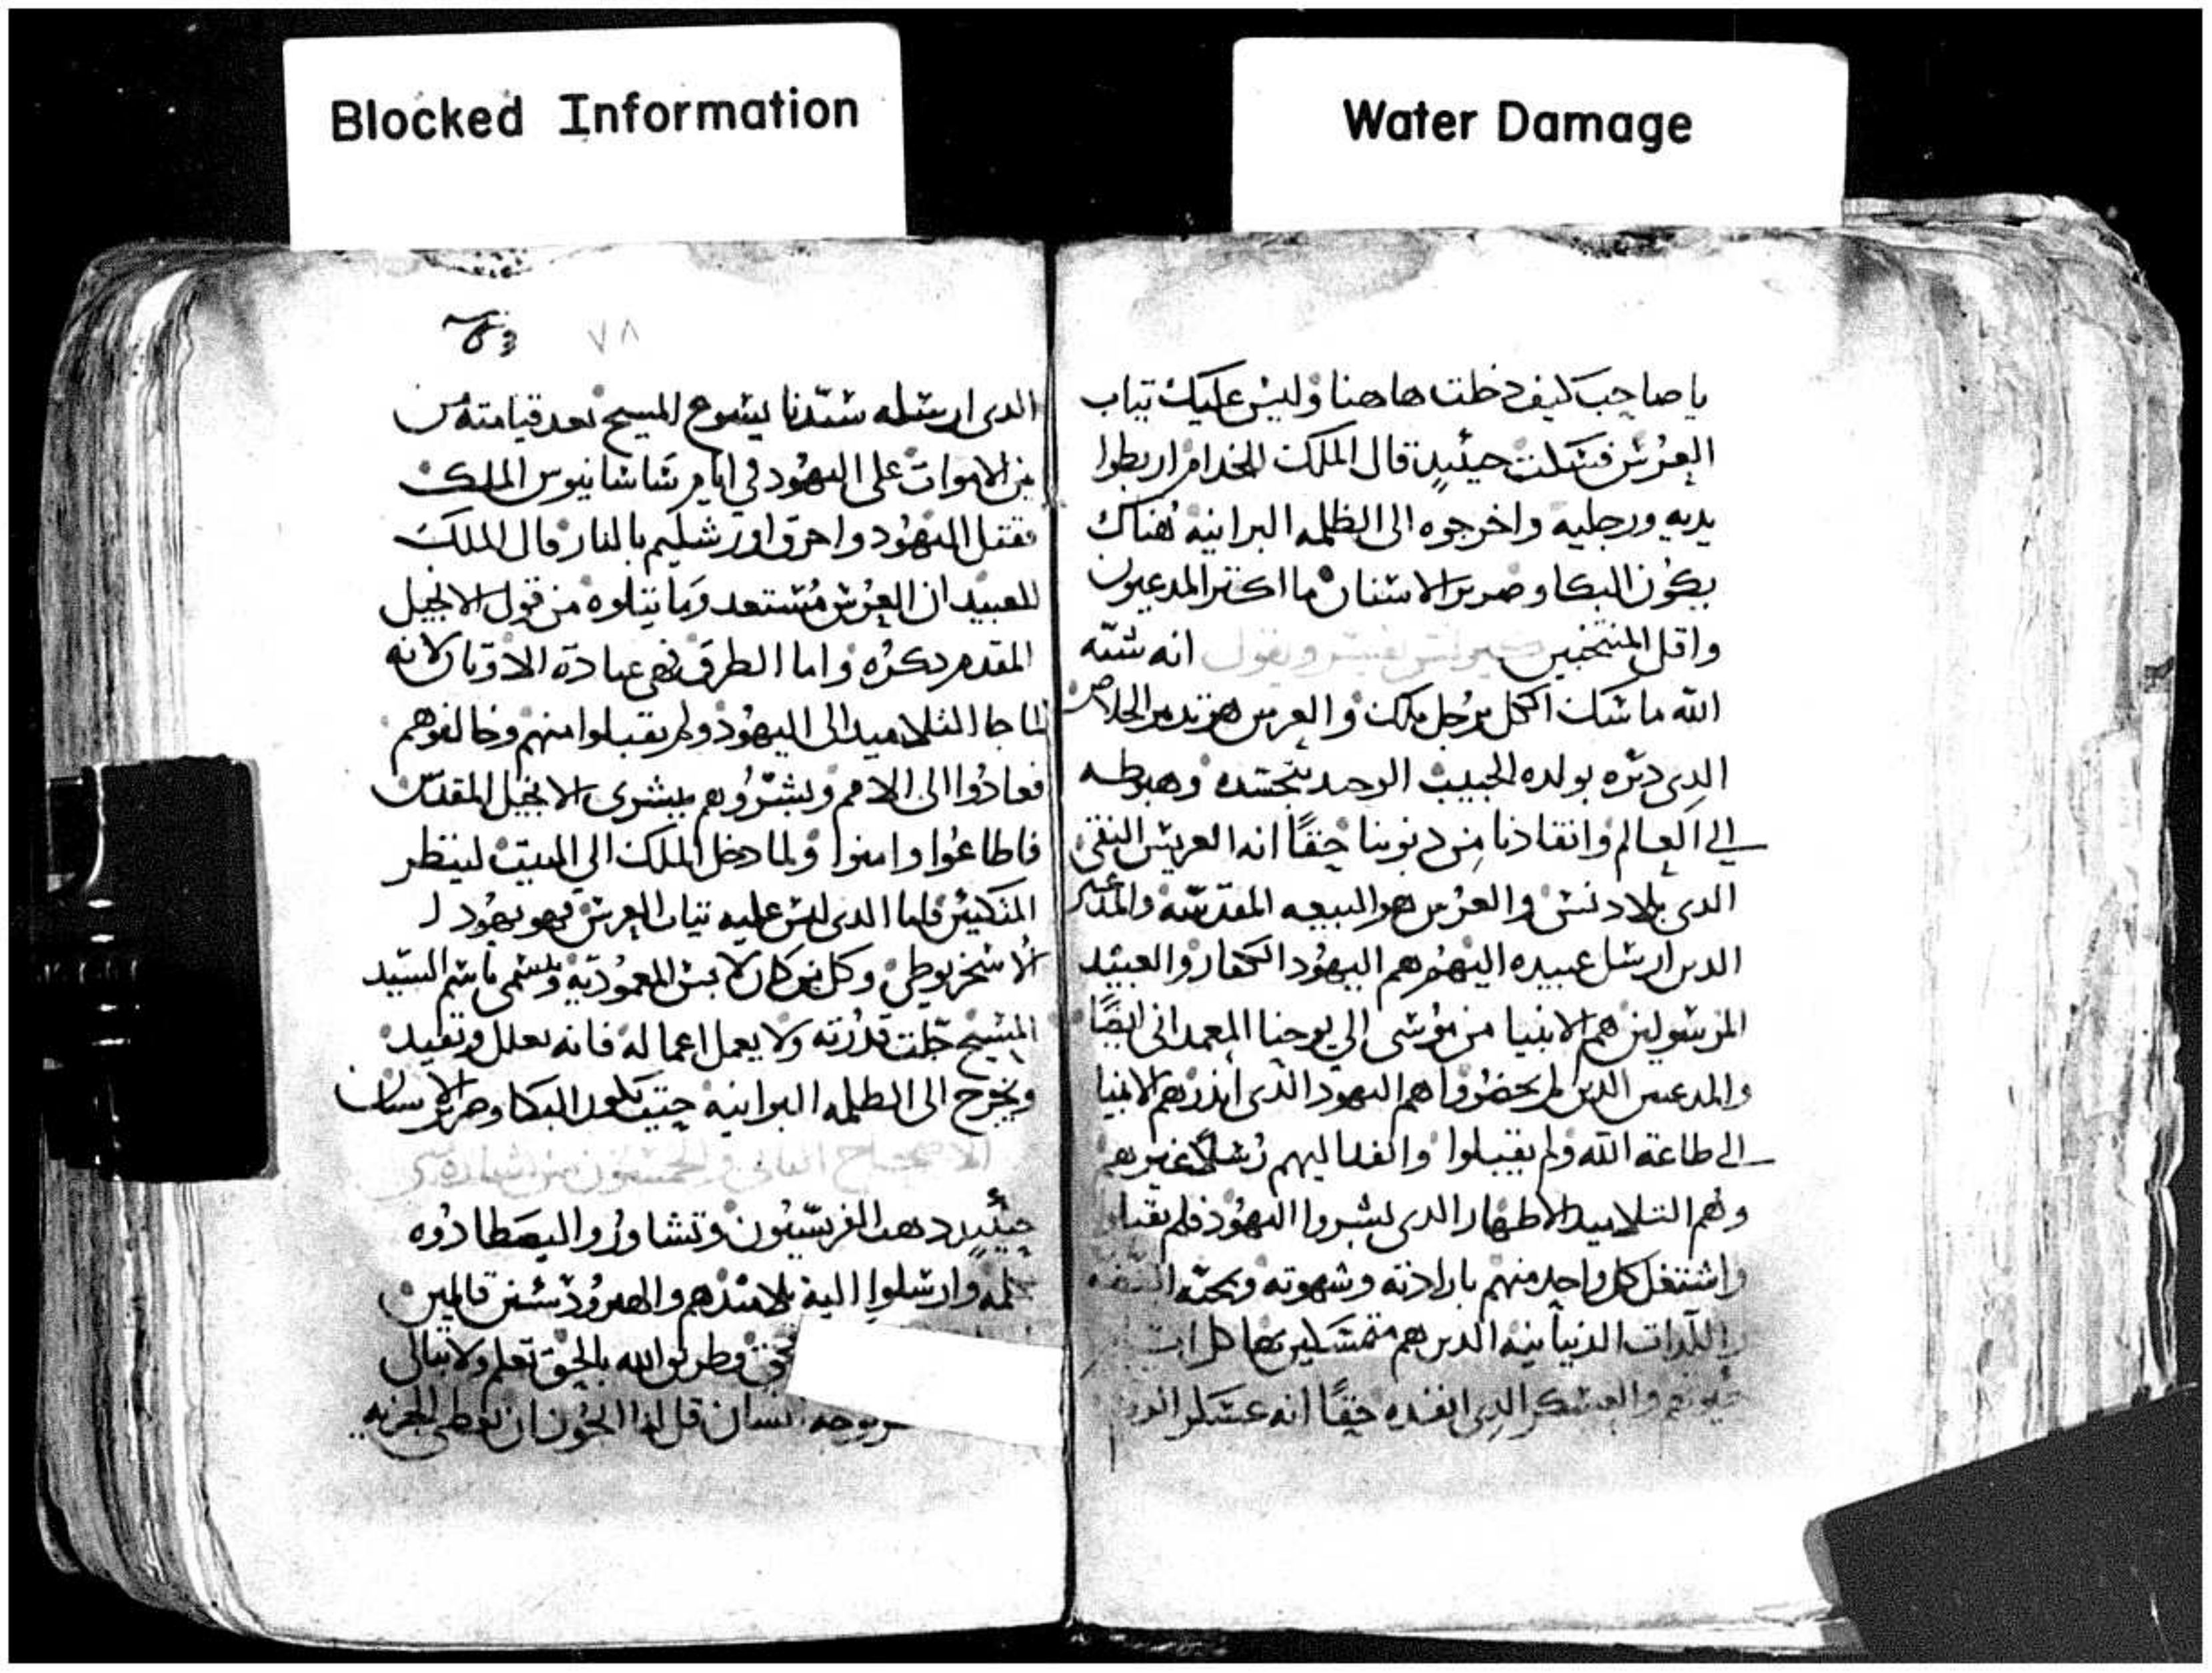 Blocked Information
Water Damage
يا صاحب كيف دخلت هاهنا وليس عليك تياب
العرس فسكت حينيدٍ قال الملك للخدام اربطوا
يديه ورجليه واخرجوه الى الظلمه البرانيه هناك
يكون البكا وصرير الاسنان ما اكتر المدعيون
واقل المنتخبين ويقول انه شبّه
الله ماسك الكل برجل ملك والعرس هو تدبير الخلاص
الدى دبّره بولده الحبيب الوحيد بتجسّده وهبوطه
الي العالم وانقادنا من دنوبنا حقًا انه العريس النقى
الدى بلا دنس والعرس هو البيعه المقدسّه والمدعيين
الدين ارسل عبيده اليهم هم اليهود الكفار والعبيد
المرسولين هم الانبيا من موسى الي يوحنا المعمدانى ايضًا
والمدعيين الدين لم يحضروا هم اليهود الدى اندرهم الانبيا
الى طاعة الله ولم يقبلوا وانفد اليهم رُسلاً غيرهم
وهم التلاميد الاطهار الدى بشروا اليهود فلم يقبلوا
واشتغل كل واحد منهم بارادته وشهوته ومحبّة
اللدات الدنيانيه الدين هم متمسكين بها كل
والعسكر الدى انفده حقًا انه عسكر
٧٨
الدى ارسله سيّدنا يسوع المسيح بعد قيامته من
بين الاموات على اليهود في ايام ساسانيوس الملك
فقتل اليهود واحرق اورشليم بالنار قال الملك
للعبيد ان العرس مُستعد وما يتلوه من قول الانجيل
المقدم دكره واما الطرق فهى عبادة الاوتان لانه
لما جا التلاميد الى اليهود ولم يقبلوا منهم وخالفوهم
فعادُوا الى الامم وبشّروهم ببشرى الانجيل المقدّس
فاطاعُوا وامنوا ولما دخل الملك الي البيت لينظر
المتكيين فاما الدى ليس عليه تياب العرس فهو يهودا
الاسخريوطى وكل من كان لابس المعموديّة وتسمى باسم السيّد
المسيح جلّت قدرته ولا يعمل اعماله فانه يغلل ويقيد
ويخرج الى الظلمه البرانيه حيت يكون البكا وصرير الاسنان
الاصحاح التانى والخمسون من بشارة متى
حينيدٍ دهب الفريسّيون وتشاوروا ليصطادُوه
بكلمه وارسلوا اليه تلاميدهم والهيرودسيين قايلين
حق وطريق الله بالحق تعلم ولا تبالى
بوجه انسان قل لنا ايجوز ان نعطى الجزيه